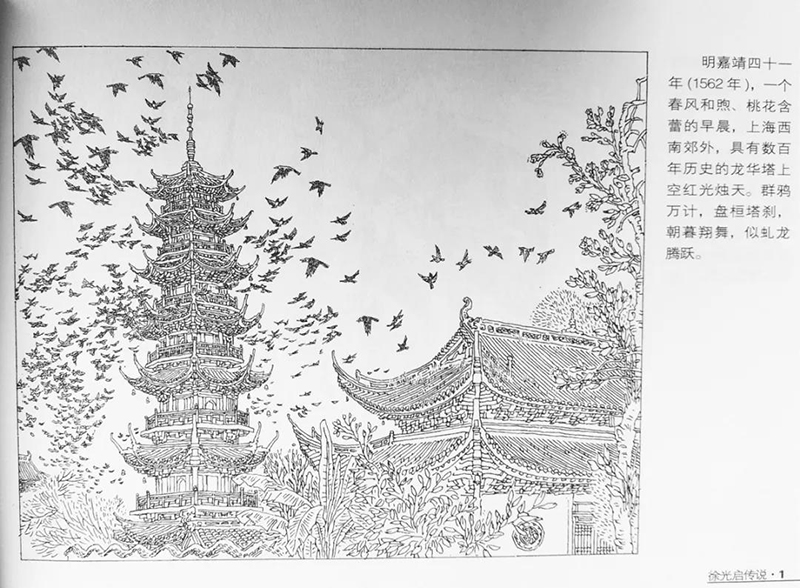 明嘉靖四十一
年(1562年)，一个
春风和煦、桃花含
蕾的早晨，上海西
南郊外，具有数百
年历史的龙华塔上
空红光烛天。群鸦
万计，盘桓塔刹，
朝暮翔舞，似虬龙
腾跃。
徐光启传说·1